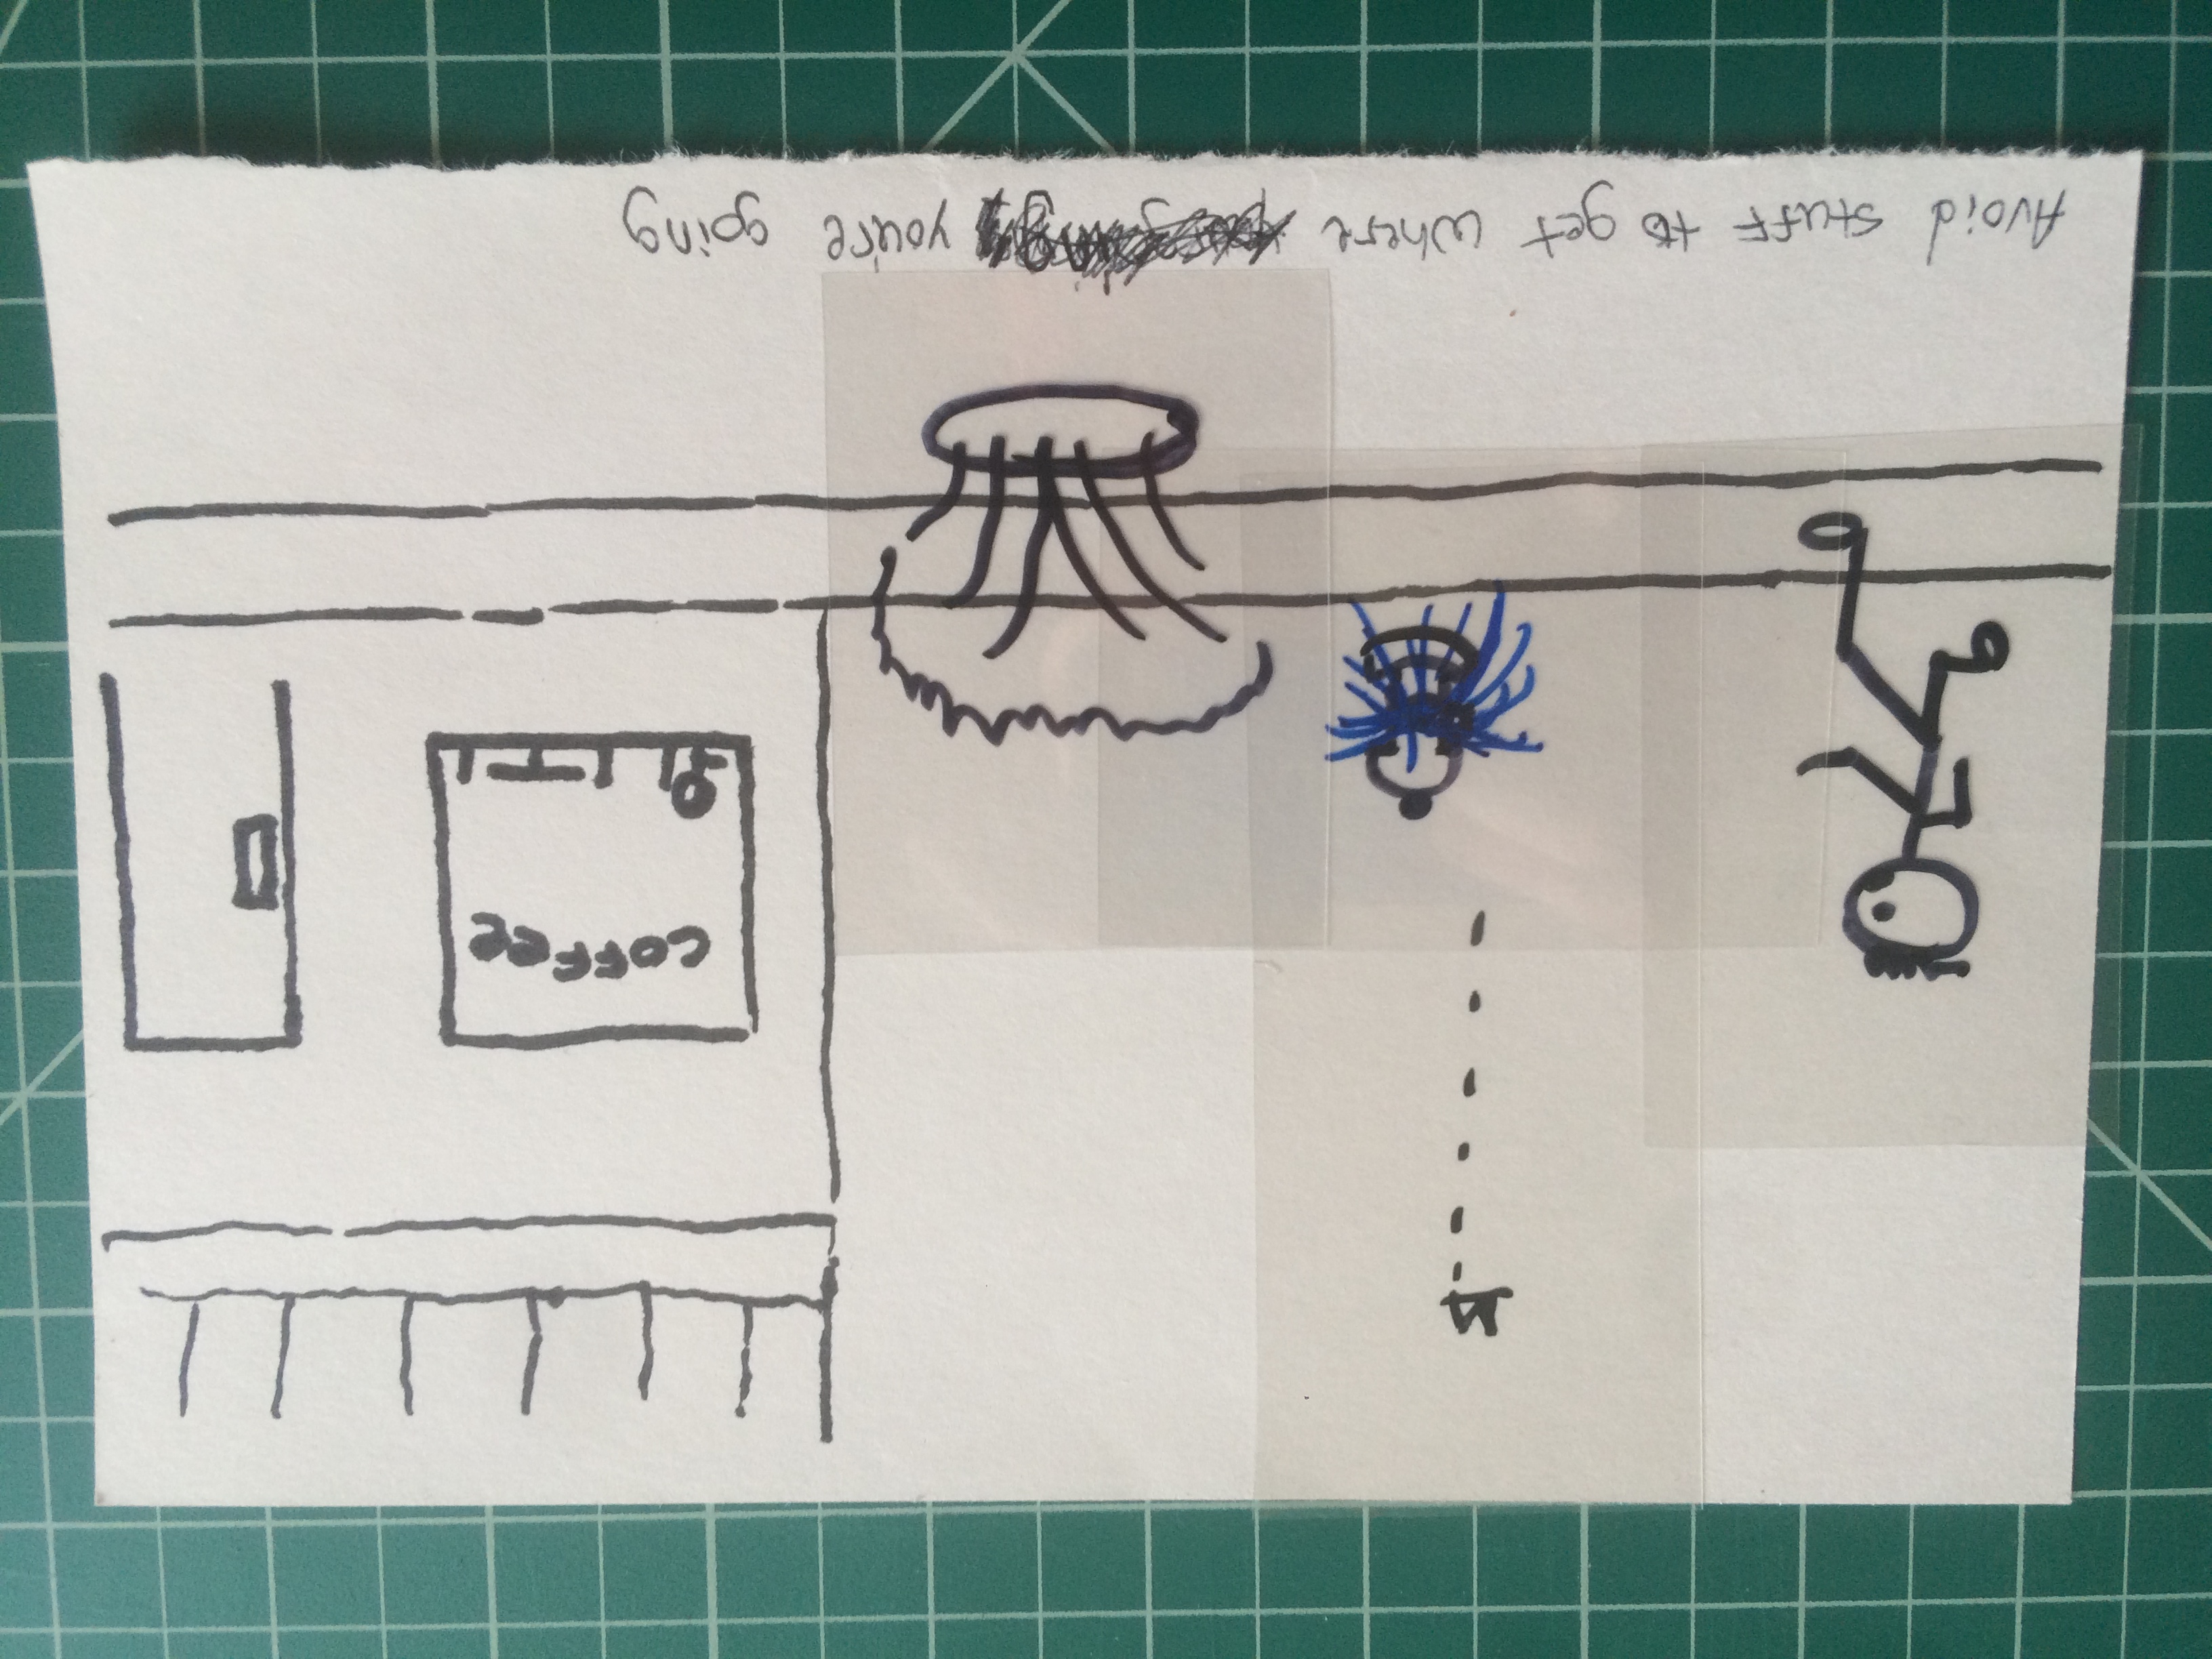 coffee
Avoid stuff to get where you're going